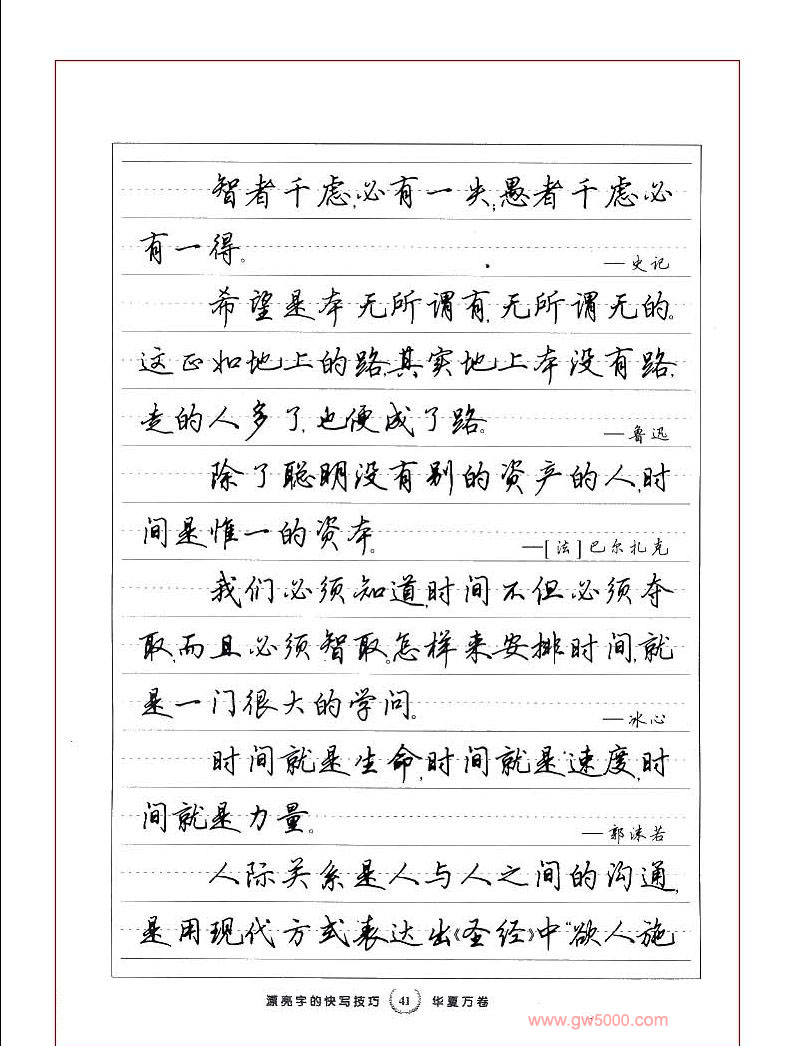 智者千虑,必有一失;愚者千虑必
有一得。
—史记
希望是本无所谓有,无所谓无的。
这正如地上的路,其实地上本没有路,
走的人多了,也便成了路。
—鲁迅
除了聪明没有别的资产的人,时
间是惟一的资本。
—[法]巴尔扎克
我们必须知道,时间不但必须夺
取,而且必须智取。怎样来安排时间,就
是一门很大的学问。
—冰心
时间就是生命,时间就是速度,时
间就是力量。
—郭沫若
人际关系是人与人之间的沟通,
是用现代方式表达出《圣经》中“欲人施
漂亮字的快写技巧 41 华夏万卷
www.gw5000.com